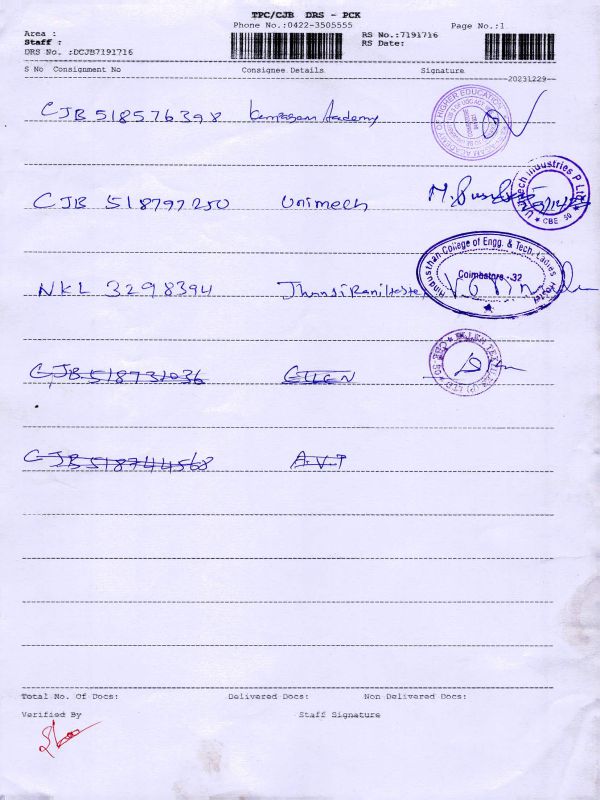 TPC/CJB DRS - PCK
Phone No.:0422-3505555 Page No.:1
Area :
Staff :
DRS No. :DCJB7191716
RS No.:7191716
RS Date:
S No Consignment No Consignee Details Signature
20231229
CJB 518576398
CJB 518797250 Unimech
Unimech Industries P Ltd
CBE 50
NKL 3298394 Jhansi Rani Hostel
Hindusthan College of Engg. & Tech. Ladies Hostel
Coimbatore - 32
CJB 518731036
CJB 518744568 A.V.P
Total No. Of Docs: Delivered Docs: Non Delivered Docs:
Verified By Staff Signature